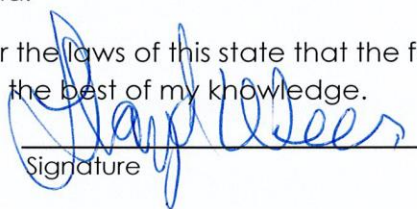 r the laws of this state that the f
the best of my knowledge.
Signature